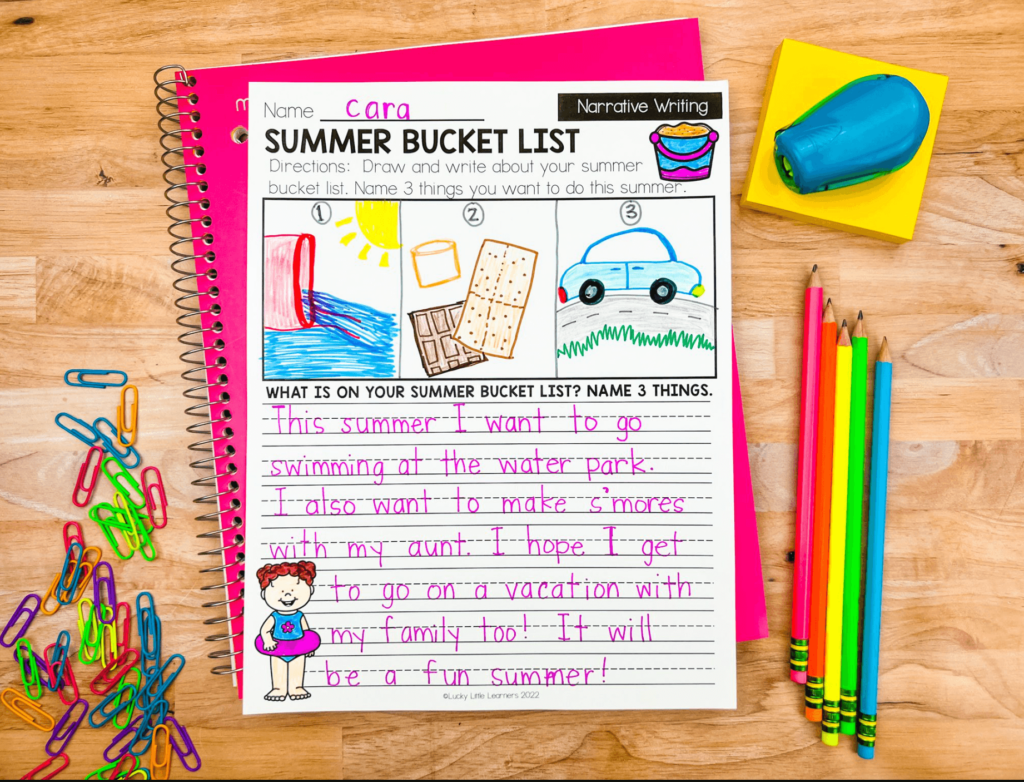 Name cara
Narrative Writing
SUMMER BUCKET LIST
Directions: Draw and write about your summer
bucket list. Name 3 things you want to do this summer.
1 2 3
WHAT IS ON YOUR SUMMER BUCKET LIST? NAME 3 THINGS.
This summer I want to go
swimming at the water park.
I also want to make s'mores
with my aunt. I hope I get
to go on a vacation with
my family too! It will
be a fun summer!
©Lucky Little Learners 2022